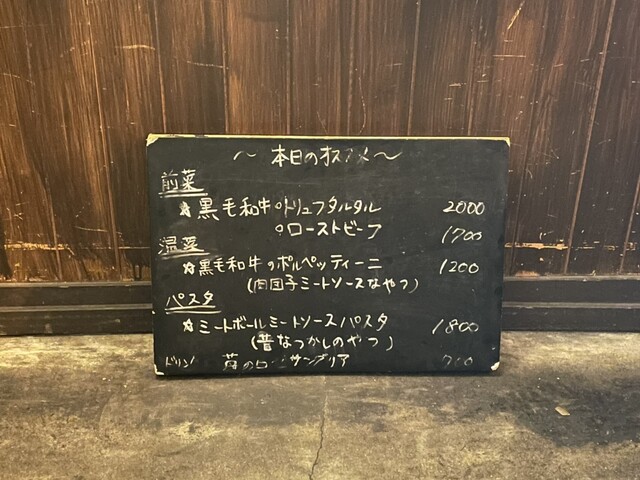 〜 本日のオススメ 〜
前菜
★黒毛和牛のトリュフタルタル 2000
のローストビーフ 1700
温菜
★黒毛和牛のポルペッティーニ 1200
(肉団子ミートソースなやつ)
パスタ
★ミートボールミートソースパスタ 1800
(昔なつかしのやつ)
ドリン 苺の サングリア 700